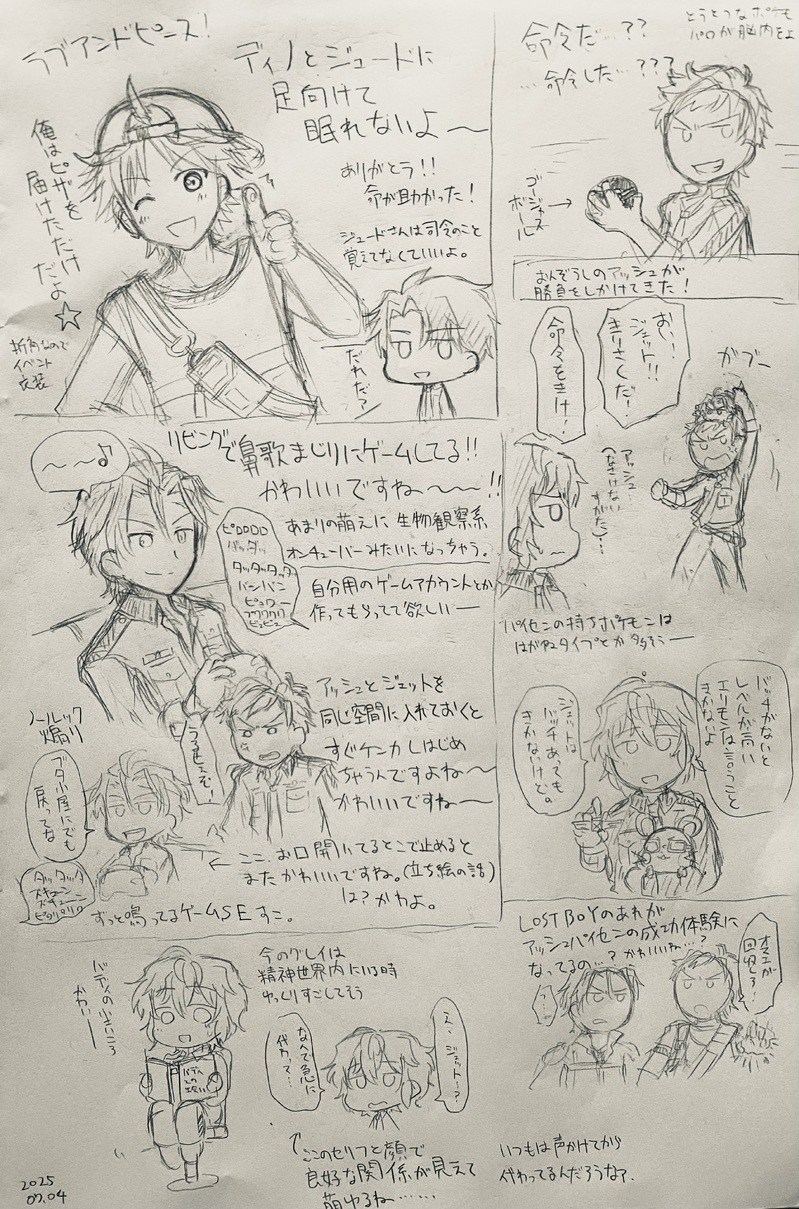 ラブアンドピース!
ディノとジュードに
足向けて
眠れないよ〜
俺はピザを
届けただけ
だよ☆
ありがとう!!
命が助かった!
ジュードさんは司令のこと
覚えてなくていいよ。
だれだ?
イベント
衣装
とうとつなポケモ
パロが脳内をよ
命令だ…??
…命令した…???
ゴージャス
ボール→
おんぞうしのアッシュが
勝負をしかけてきた!
おい!
ジェット!!
きりさくだ!
命令をきけ!
ガブー
アッシュ
(なさけない
すがた)…
パイセンの持ちポケモンは
はがねタイプとか多そう―
バッチがないと
レベルが高い
エリモンは言うこと
きかないよ
ジェットは
バッチあっても
きかないけどね
〜〜♪
リビングで鼻歌まじりにゲームしてる!!
かわいいですね〜〜!!
あまりの萌えに生物観察系
オンチューバーみたいになっちゃう。
自分用のゲームアカウントとか
作ってもらってて欲しい―
ピロロロロ
バッダッ
タッタッタッタッ
バンバン
ピュワー
アッシュとジェットを
同じ空間に入れておくと
すぐケンカしはじめ
ちゃうんですよね〜
かわいいですね〜
うるせえぞ!
ノールック
煽り
ブタ小屋にでも
戻ってな
タッタッタ
ズキューン
ズキューン
←ここ、お口開いてるとこで止めると
またかわいいですね。(立ち絵の話)
は?かわよ。
ずっと鳴ってるゲームSEすこ。
LOST BOYのあれが
アッシュパイセンの成功体験に
なってるの…?かわいいね…?
オマエが
回収しろ!
…?
バディのふさいころ
かわいー
バディ
との
今のグレイは
精神世界内にいる時
ゆっくりすごしてそう
え、ジェット…?
なんで急に
代わって…
↑
このセリフと顔で
良好な関係が見えて
萌ゆるね……
いつもは声かけてから
代わってるんだろうなァ.
2025
07.04